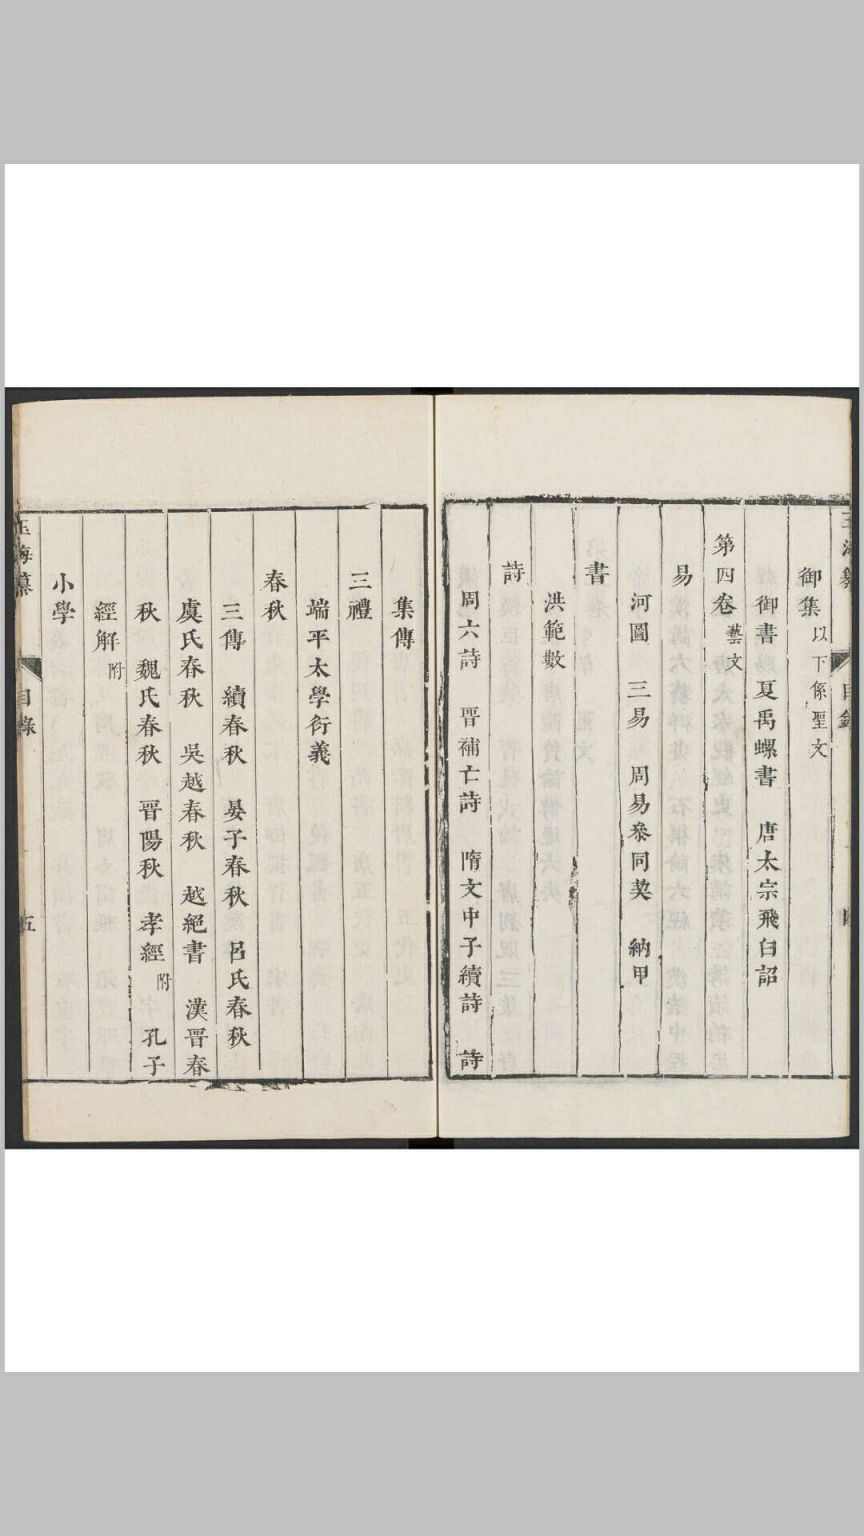 御集以下係聖文
御書 夏禹螺書 唐太宗飛白詔
第四卷藝文
易
河圖 三易 周易叅同契 納甲
書
洪範數
詩
周六詩 晉補亡詩 隋文中子續詩 詩
集傳
三禮
端平太學衍義
春秋
三傳 續春秋 晏子春秋 呂氏春秋
虞氏春秋 吳越春秋 越絕書 漢晉春
秋 魏氏春秋 晉陽秋 孝經附 孔子
經解附
小學
玉海纂 目錄 五